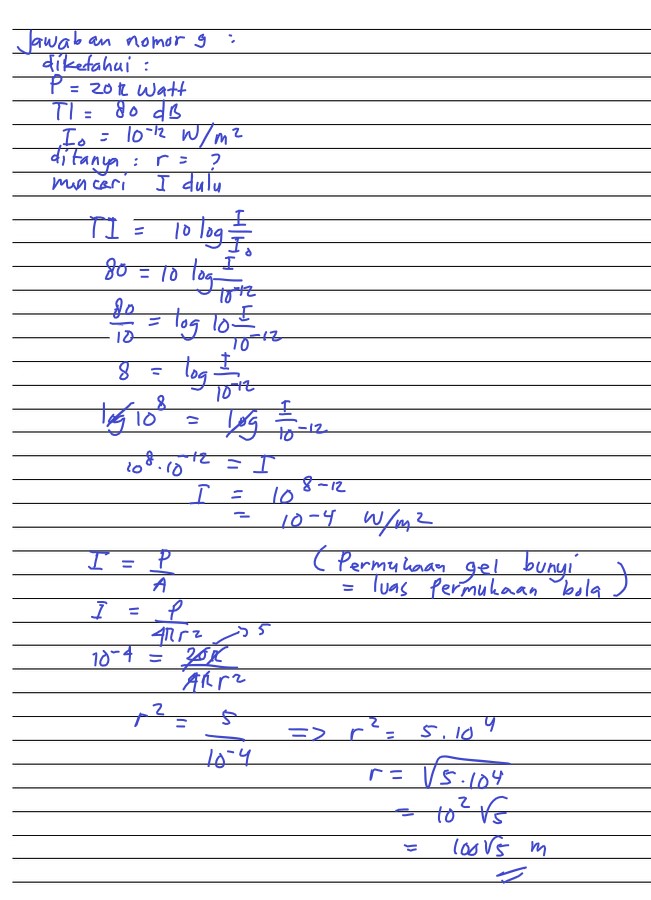 Jawaban nomor 9 :
diketahui :
P = 20π Watt
TI = 80 dB
I₀ = 10⁻¹² W/m²
ditanya : r = ?
mencari I dulu
TI = 10 log I/I₀
80 = 10 log I/10⁻¹²
80/10 = log 10 I/10⁻¹²
8 = log I/10⁻¹²
log 10⁸ = log I/10⁻¹²
10⁸.10⁻¹² = I
I = 10⁸⁻¹²
= 10⁻⁴ W/m²
I = P/A (Permukaan gel bunyi
= luas permukaan bola)
I = P/4πr²
10⁻⁴ = 20π/4πr² → 5
r² = 5/10⁻⁴ => r² = 5.10⁴
r = √5.10⁴
= 10²√5
= 100√5 m